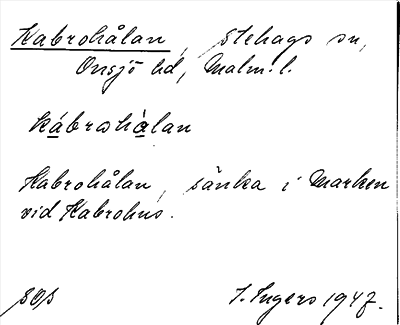 Kabrohålan, Stehags sn,
Onsjö hd, Malm. l.
kábrohålan
Kabrohålan, sänka i Marken
vid Kabrohus.
I. Ingers 1947.